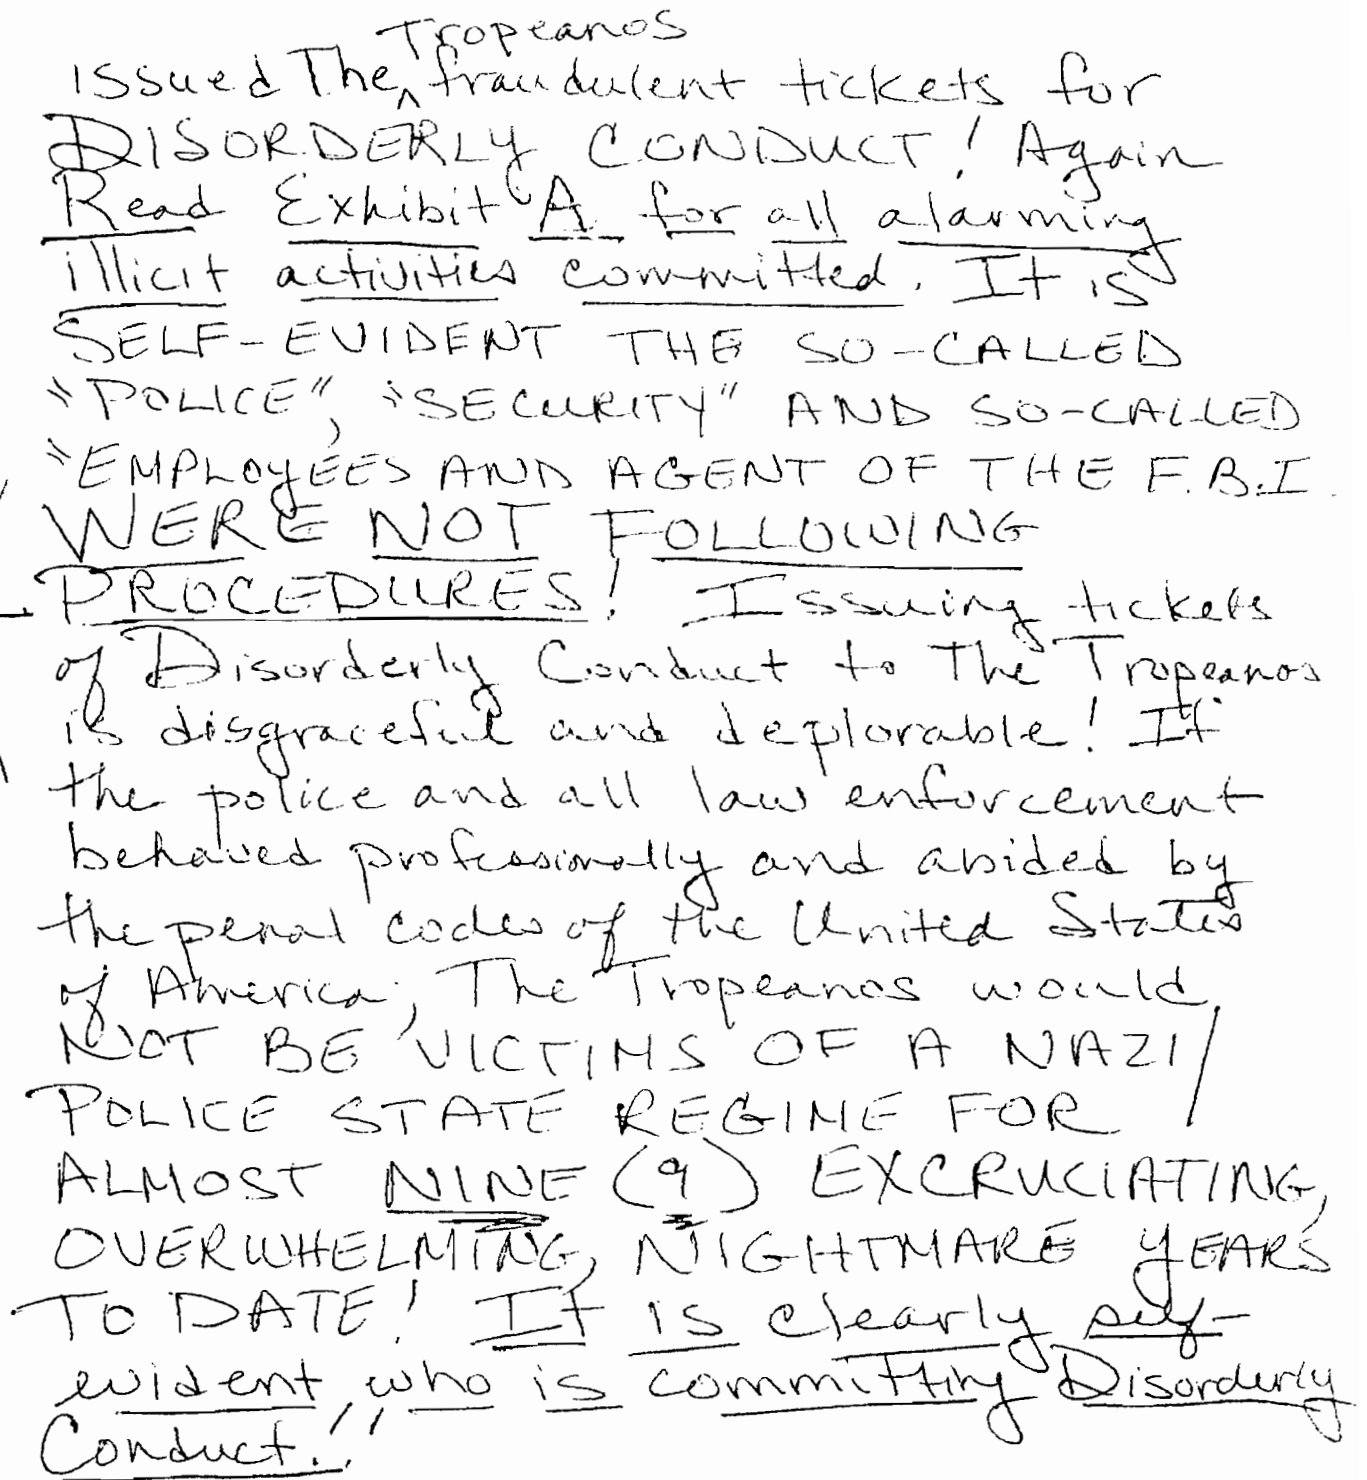 Tropeanos
issued The ^ fraudulent tickets for
DISORDERLY CONDUCT! Again
Read Exhibit "A for all alarming
illicit activities committed. It is
SELF-EVIDENT THE SO-CALLED
"POLICE", "SECURITY" AND SO-CALLED
"EMPLOYEES AND AGENT OF THE F.B.I.
WERE NOT FOLLOWING
PROCEDURES! Issuing tickets
of Disorderly Conduct to The Tropeanos
is disgraceful and deplorable! If
the police and all law enforcement
behaved professionally and abided by
the penal codes of the United States
of America, The Tropeanos would
NOT BE VICTIMS OF A NAZI/
POLICE STATE REGIME FOR
ALMOST NINE (9) EXCRUCIATING,
OVERWHELMING, NIGHTMARE YEARS
TO DATE! It is clearly self-
evident who is committing Disorderly
Conduct!!